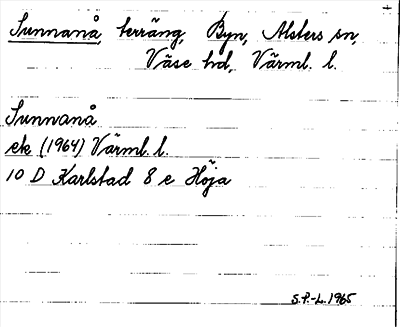 Sunnanå, terräng, Byn, Alsters sn,
Väse hd, Värml. l.
Sunnanå
ek (1964) Värml. l.
10 D Karlstad 8 e Höja
S.P.-L. 1965